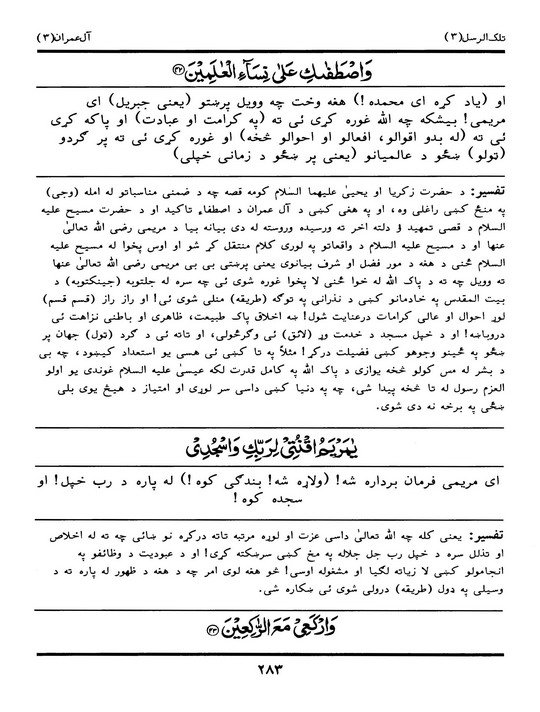 تلک الرسل (۳)
آل عمران (۳)
وَاصْطَفٰىكِ عَلٰى نِسَآءِ الْعٰلَمِيْنَ ۴۲
او (یاد کړه ای محمده!) هغه وخت چه وویل پرښتو (یعنی جبریل) ای
مریمې! بیشکه چه الله غوره کړی ئی ته (په کرامت او عبادت) او پاکه کړی
ئی ته (له بدو اقوالو، افعالو او احوالو څخه) او غوره کړی ئی ته پر ګردو
(ټولو) ښځو د عالمیانو (یعنی پر ښځو د زمانی خپلی)
تفسیر: د حضرت زکریا او یحییٰ علیهما السلام کومه قصه چه د ضمنی مناسباتو له امله (وجی)
په منځ کښی راغلی وه، او په هغی کښی د آل عمران د اصطفاء تاکید او د حضرت مسیح علیه
السلام د قصی تمهید ؤ دلته آخر ته ورسیده وروسته له دی بیانه بیا د مریمی رضی الله تعالیٰ
عنها او د مسیح علیه السلام د واقعاتو په لوری کلام منتقل کړ شو او اوس پخوا له مسیح علیه
السلام څنی د هغه د مور فضل او شرف بیانوی یعنی پرښتی بی بی مریمی رضی الله تعالیٰ عنها
ته وویل چه ته د پاک الله له خوا څنی لا پخوا غوره شوی ئی چه سره له جلتوبه (جینکتوبه) د
بیت المقدس په خادمانو کښی د نذرانی په توګه (طریقه) منلی شوی ئی! او راز راز (قسم قسم)
لوړ احوال او عالی کرامات درعنایت شول! ښه اخلاق پاک طبیعت، ظاهری او باطنی نزاهت ئی
دروباښه! او د خپل مسجد د خدمت وړ (لائق) ئی وګرځولی، او تاته ئی د ګرد (ټول) جهان پر
ښځو په ځینو وجوهو کښی فضیلت درکړ! مثلاً په تا کښی ئی هسی یو استعداد کیښود، چه بی
د بشر له مس کولو څخه یوازی د پاک الله په کامل قدرت لکه عیسیٰ علیه السلام غوندی یو اولو
العزم رسول له تا څخه پیدا شی، چه په دنیا کښی داسی سر لوړی او امتیاز د هیڅ یوی بلی
ښځی په برخه نه دی شوی.
يٰمَرْيَمُ اقْنُتِىْ لِرَبِّكِ وَاسْجُدِىْ
ای مریمی فرمان برداره شه! (ولاړه شه! بندګی کوه!) له پاره د رب خپل! او
سجده کوه!
تفسیر: یعنی کله چه الله تعالیٰ داسی عزت او لوړه مرتبه تاته درکړه نو ښائی چه ته له اخلاص
او تذلل سره د خپل رب جل جلاله په مخ کښی سرښکته کړی! او د عبودیت د وظائفو په
انجامولو کښی لا زیاته لګیا او مشغوله اوسی! څو هغه لوی امر چه د هغه د ظهور له پاره ته د
وسیلی په ډول (طریقه) درولی شوی ئی ښکاره شی.
وَارْكَعِىْ مَعَ الرّٰكِعِيْنَ ۴۳
۲۸۳